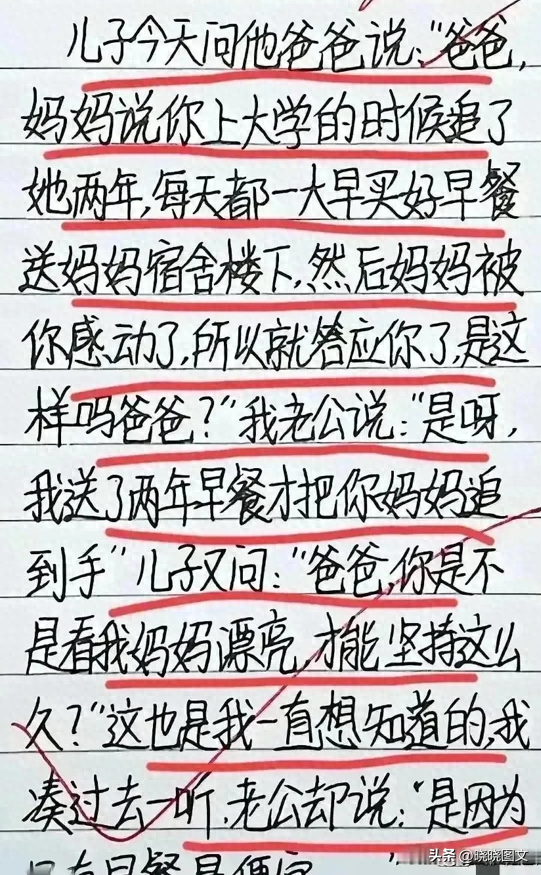 儿子今天问他爸爸说:“爸爸,
妈妈说你上大学的时候追了
她两年,每天都一大早买好早餐
送妈妈宿舍楼下,然后妈妈被
你感动了,所以就答应你了,是这
样吗爸爸?”我老公说:“是呀,
我送了两年早餐才把你妈妈追
到手”儿子又问:“爸爸,你是不
是看我妈妈漂亮,才能坚持这么
久?”这也是我一直想知道的,我
凑过去一听,老公却说:“是因为
头条 @晓晓图文